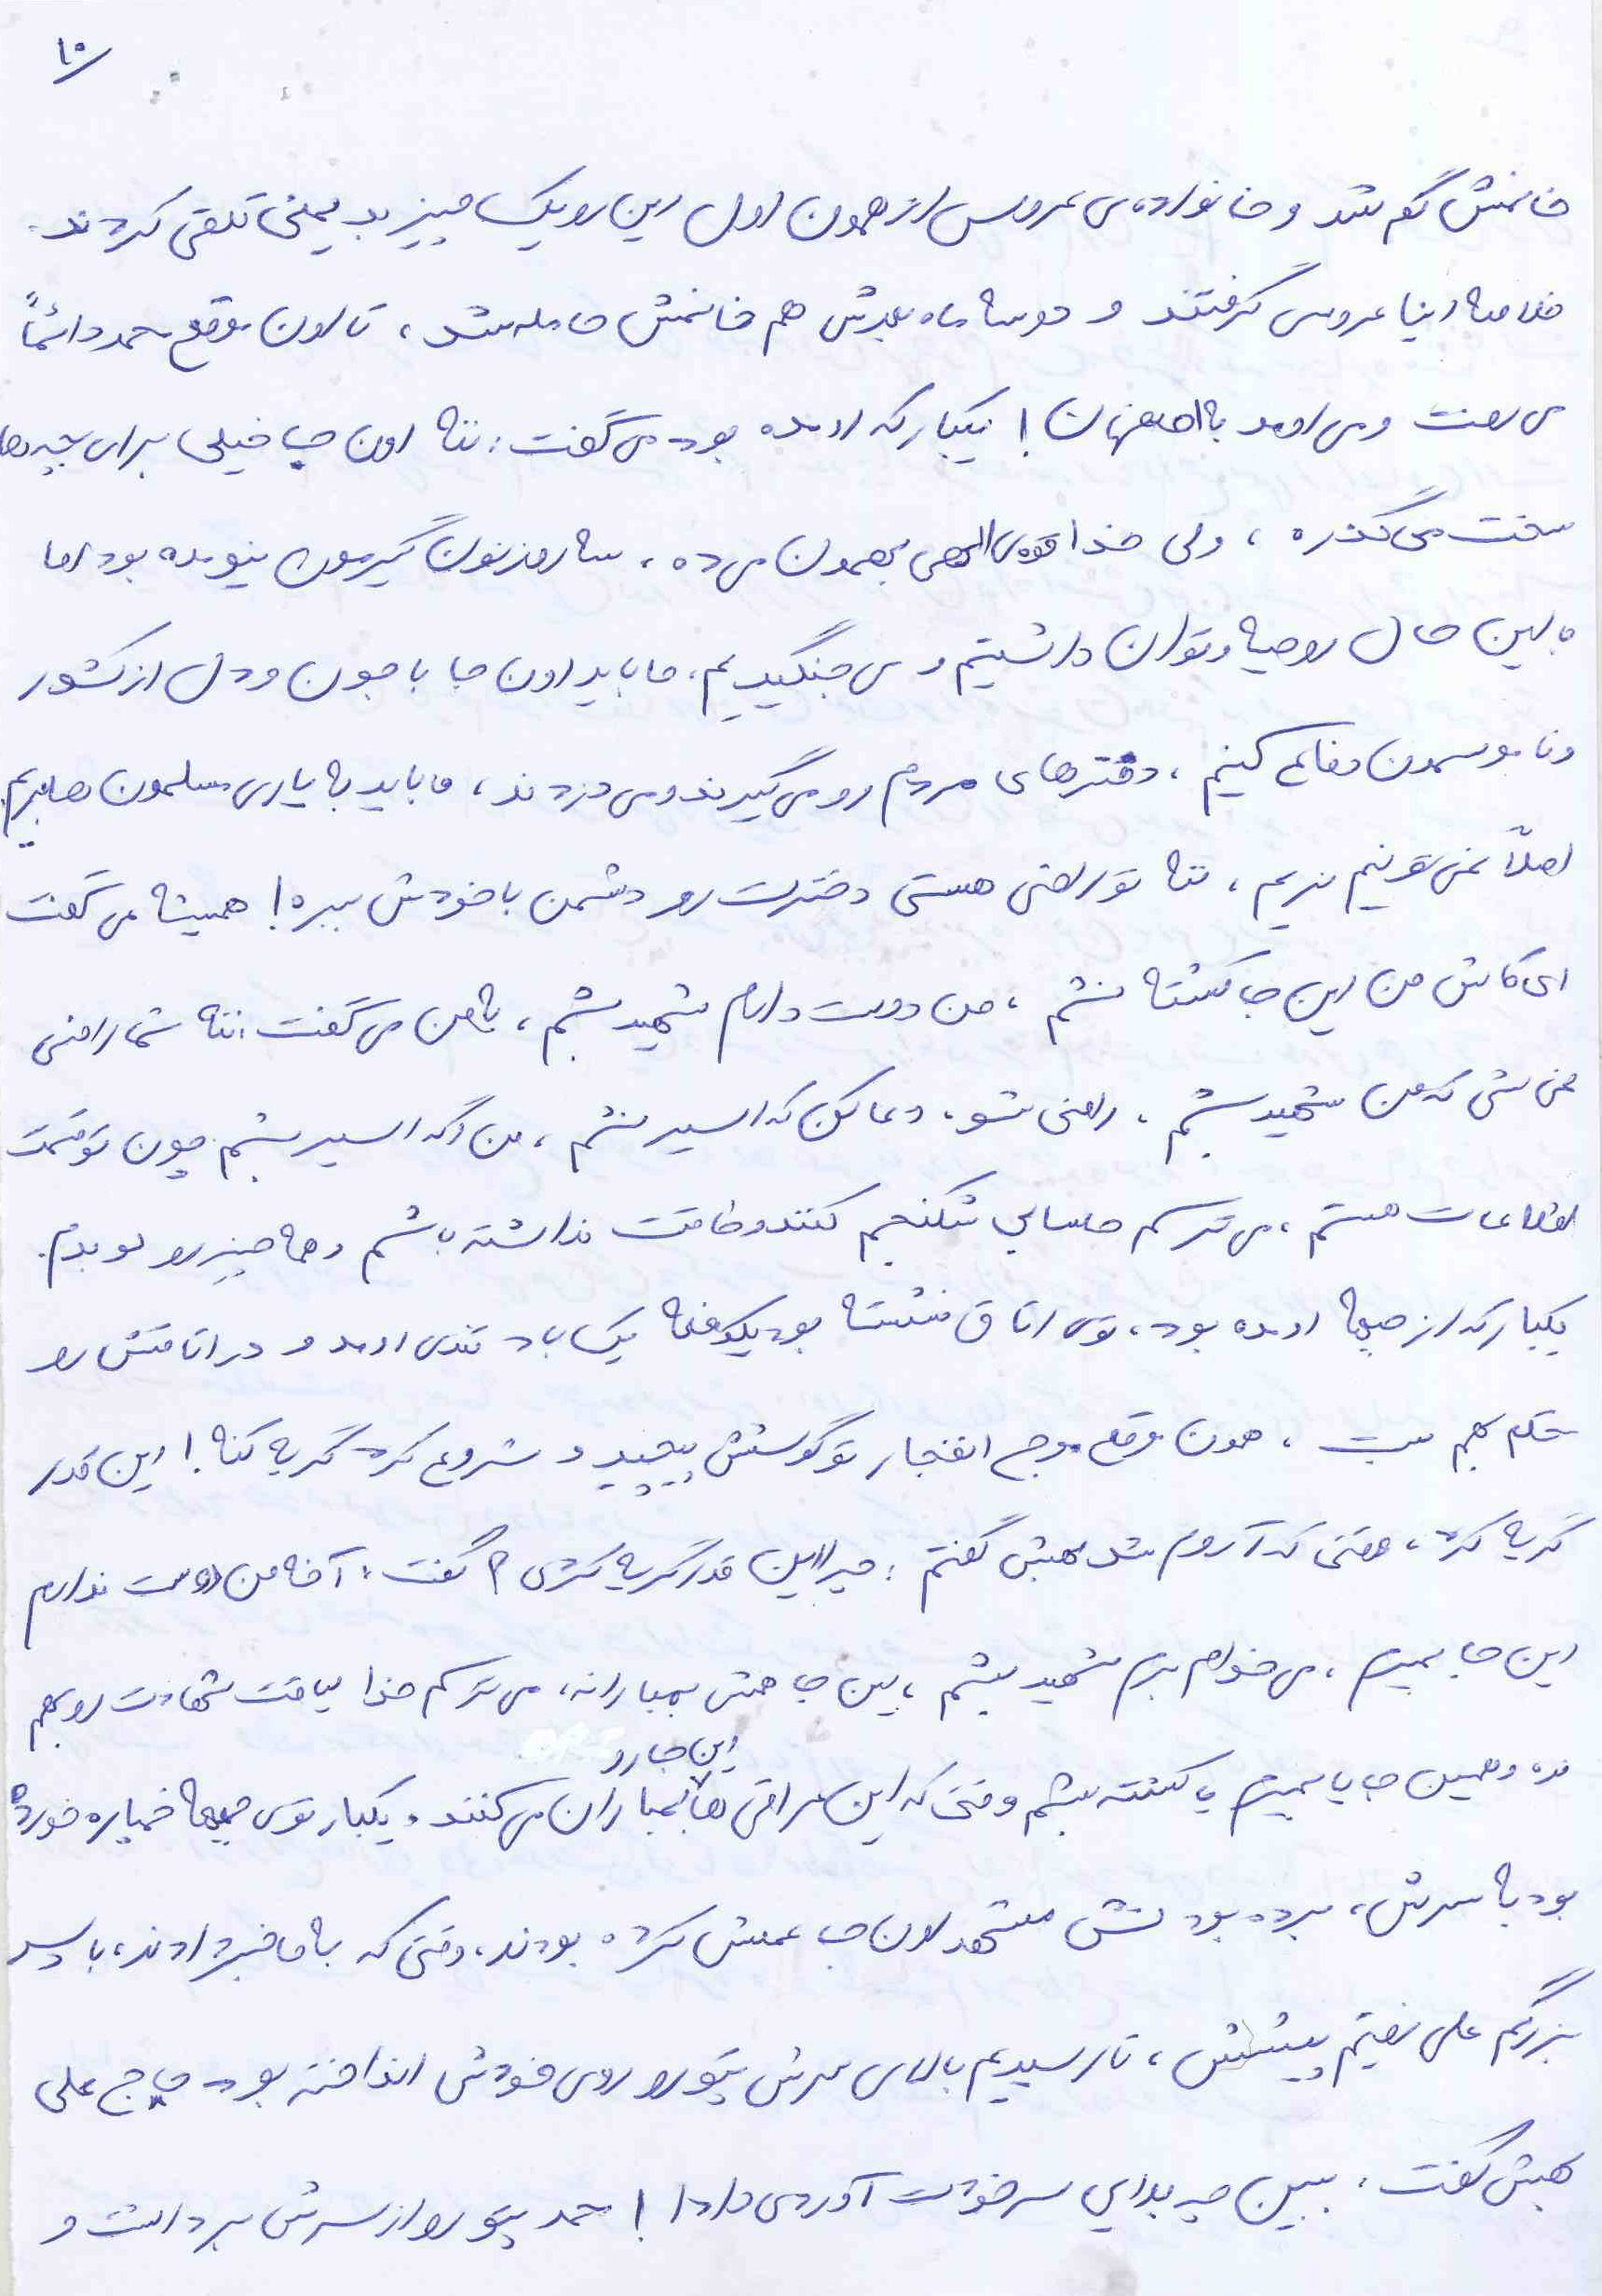 ۱۰
خانمش گم شد و خانواده‌ی عروس از همون اول این رو یک چیز بد یمنی تلقی کردند.
خلاصه اینا عروسی گرفتند و دو سه ماه بعدش هم خانمش حامله شد، تا اون موقع محمد دائماً
می رفت و می اومد به اصفهان! یکبار که اومده بود می گفت: ننه اون جا خیلی برای بچه ها
سخت می گذره، ولی خدا قوه‌ی الهی بهمون می ده، سه روز نون گیرمون نیومده بود اما
با این حال روحیه و توان داشتیم و می جنگیدیم، ما باید اون جا با جون و دل از کشور
و ناموسمون دفاع کنیم، دخترهای مردم رو می گیرند و می دزدند، ما باید به یاری مسلمون ها بریم.
اصلاً نمی تونیم نریم، ننه تو راضی هستی دخترت رو دشمن با خودش ببره! همیشه می گفت
ای کاش من این جا کشته نشم، من دوست دارم شهید بشم، به من می گفت: ننه شما راضی
نمی شی که من شهید بشم، راضی شو، دعا کن که اسیر نشم، من اگه اسیر بشم چون تو قسمت
اطلاعات هستم، می ترسم حسابی شکنجم کنند و طاقت نداشته باشم و همه چیز رو لو بدم.
یکبار که از جبهه اومده بود، توی اتاق نشسته بود یکدفعه یک باد تندی اومد و در اتاقش رو
محکم بهم بست، همون موقع موج انفجار تو گوشش پیچید و شروع کرد گریه کنه! این قدر
گریه کرد، وقتی که آروم شد بهش گفتم: چرا این قدر گریه کردی؟ گفت: آخه من دوست ندارم
این جا بمیرم، می خوام برم شهید بشم، این جا همش بمبارانه، می ترسم خدا لیاقت شهادت رو بهم
نده و همین جا یا بمیرم یا کشته بشم وقتی که این عراقی ها این جا رو بمباران می کنند. یکبار توی جبهه خمپاره خورده
بود به سرش، برده بودنش مشهد اون جا عملش کرده بودند، وقتی که به ما خبر دادند، با پسر
بزرگم علی رفتیم پیشش، تا رسیدیم بالای سرش پتو رو روی خودش انداخته بود حاج علی
بهش گفت: ببین چه بلایی سر خودت آوردی دادا! محمد پتو رو از سرش برداشت و